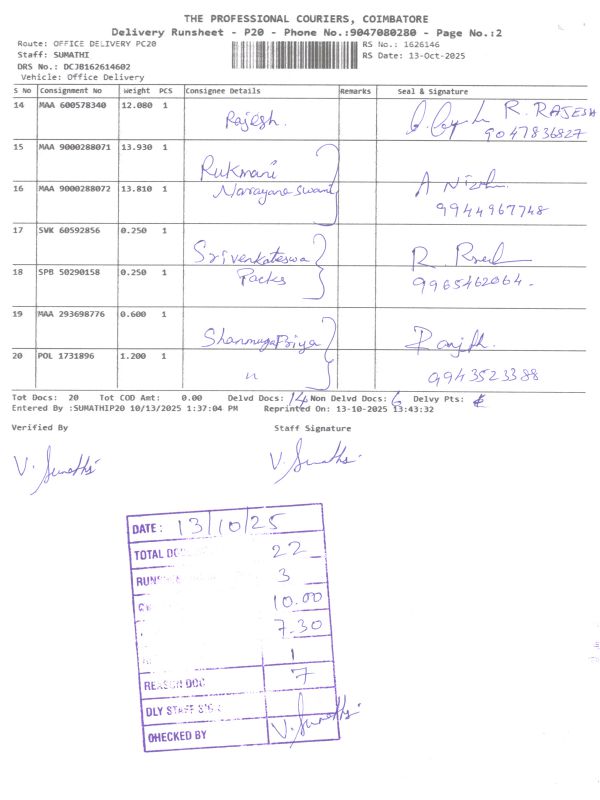 THE PROFESSIONAL COURIERS, COIMBATORE
Delivery Runsheet - P20 - Phone No.:9047080280 - Page No.:2
Route: OFFICE DELIVERY PC20 RS No.: 1626146
Staff: SUMATHI RS Date: 13-Oct-2025
DRS No.: DCJB162614602
Vehicle: Office Delivery
S No Consignment No Weight PCS Consignee Details Remarks Seal & Signature
14 MAA 600578340 12.080 1 Rajesh. R. RAJESH
9047836827
15 MAA 9000288071 13.930 1 Rukmani
16 MAA 9000288072 13.810 1 Narrayana Swami
9944967748
17 SVK 60592856 0.250 1 Srivenkateswa R.
18 SPB 50290158 0.250 1 Packs 9965462064.
19 MAA 293698776 0.600 1 ShanmugaPriya Ranjith.
20 POL 1731896 1.200 1 " 9943523388
Tot Docs: 20 Tot COD Amt: 0.00 Delvd Docs: 14 Non Delvd Docs: 6 Delvy Pts:
Entered By :SUMATHIP20 10/13/2025 1:37:04 PM Reprinted On: 13-10-2025 13:43:32
Verified By Staff Signature
V. Sumathi V. Sumathi
DATE: 13/10/25
TOTAL 22
3
10.00
7.30
1
REASON DOC 7
DLY STAFF
CHECKED BY V. Sumathi